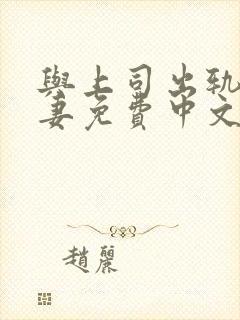 與上司出軌
妻免費中文
趙麗